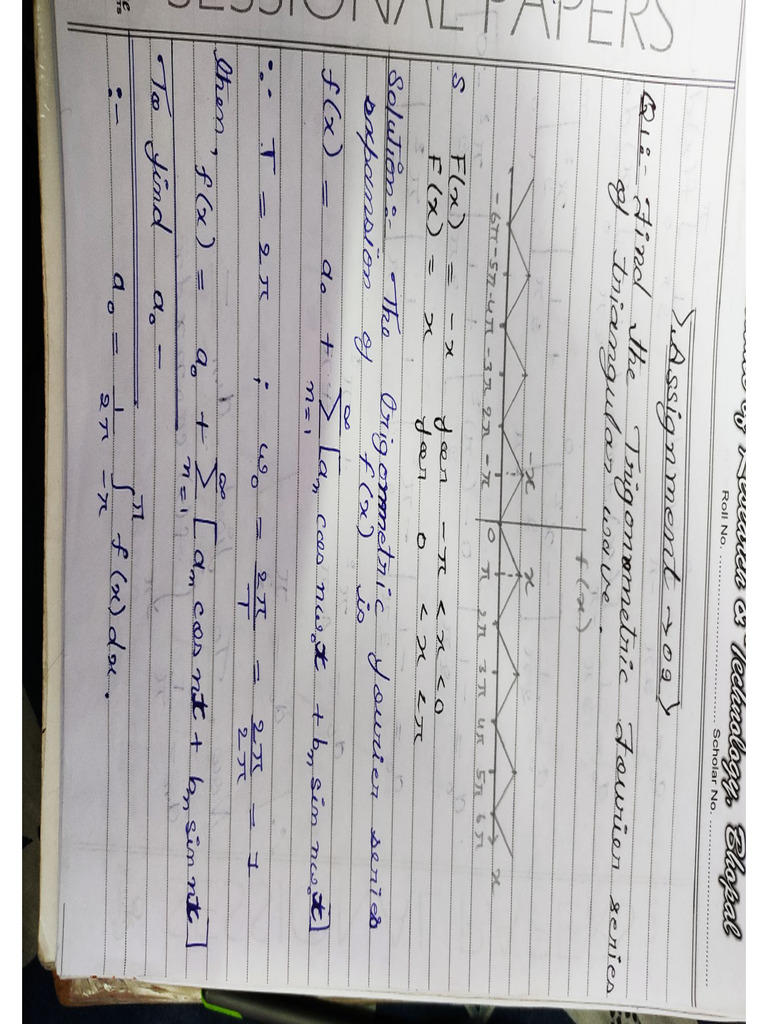 Technology, Bhopal
Roll No.
Scholar No.
Assignment → 02
Q1:- Find the Trigonometric Fourier series
of triangular wave.
f(x)
-x x
-6π -5π -4π -3π 2π -π 0 π 2π 3π 4π 5π 6π x
S F(x) = -x for -π < x < 0
F(x) = x for 0 < x < π
Solution:- The trigonometric fourier series
expansion of f(x) is
f(x) = a₀ + ∞ Σ n=1 [aₙ cos nω₀x + bₙ sin nω₀x]
∵ T = 2π ; ω₀ = 2π/T = 2π/2π = 1
then, f(x) = a₀ + ∞ Σ n=1 [aₙ cos nx + bₙ sin nx]
To find a₀ -
:- a₀ = 1/2π ∫ -π π f(x) dx.
SESSIONAL PAPERS